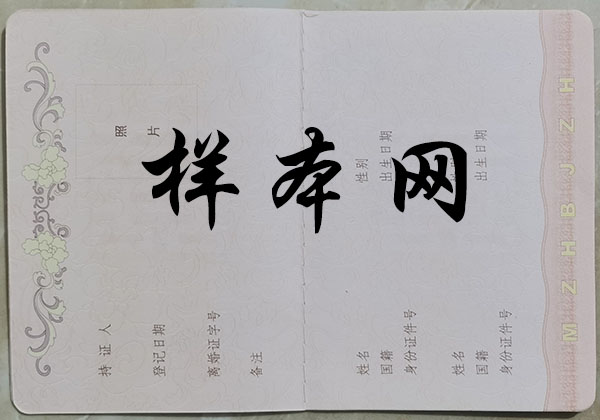 样本网
照片
持证人
登记日期
离婚证字号
备注
姓名 性别
国籍 出生日期
身份证件号
姓名
国籍 出生日期
身份证件号
MZHBJZH